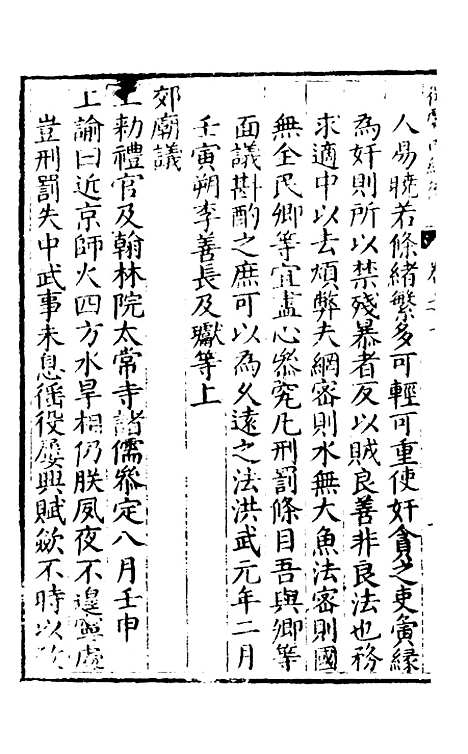 人易曉若條緒繁多可輕可重使奸貪之吏夤縁
為奸則所以禁殘暴者反以賊良善非良法也務
求適中以去煩弊夫網密則水無大魚法密則國
無全民卿等宜盡心參究凡刑罰條目吾與卿等
面議斟酌之庶可以為久遠之法洪武元年二月
壬寅朔李善長及瓛等上
郊廟議
上勑禮官及翰林院太常寺諸儒參定八月壬申
上諭曰近京師火四方水旱相仍朕夙夜不遑寧處
豈刑罰失中武事未息徭役屢興賦斂不時以致